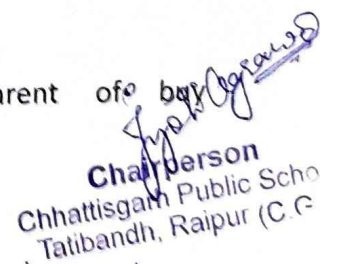 arent of
Jyoti Agrawal
Chairperson
Chhattisgarh Public Scho
Tatibandh, Raipur (C.G